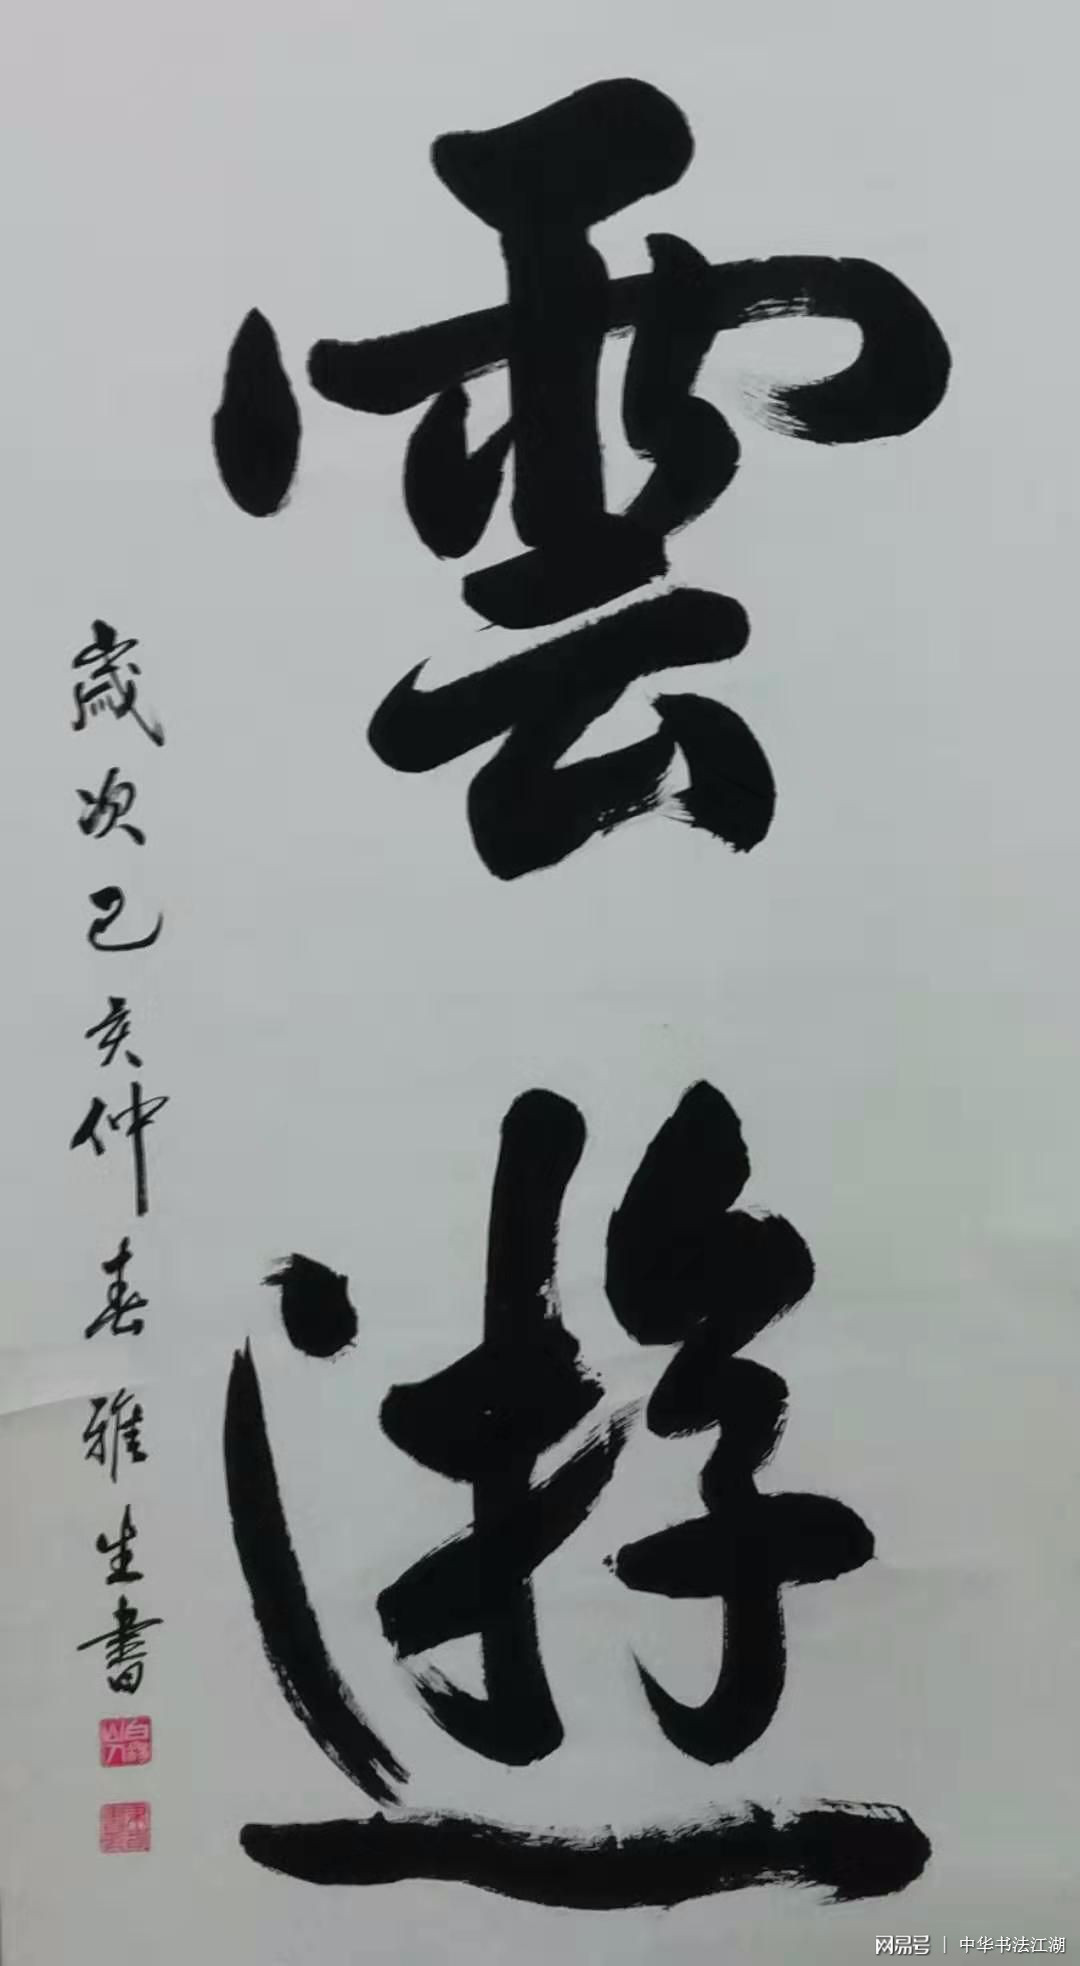 雲遊
歲次己亥仲春雅生書
网易号 | 中华书法江湖